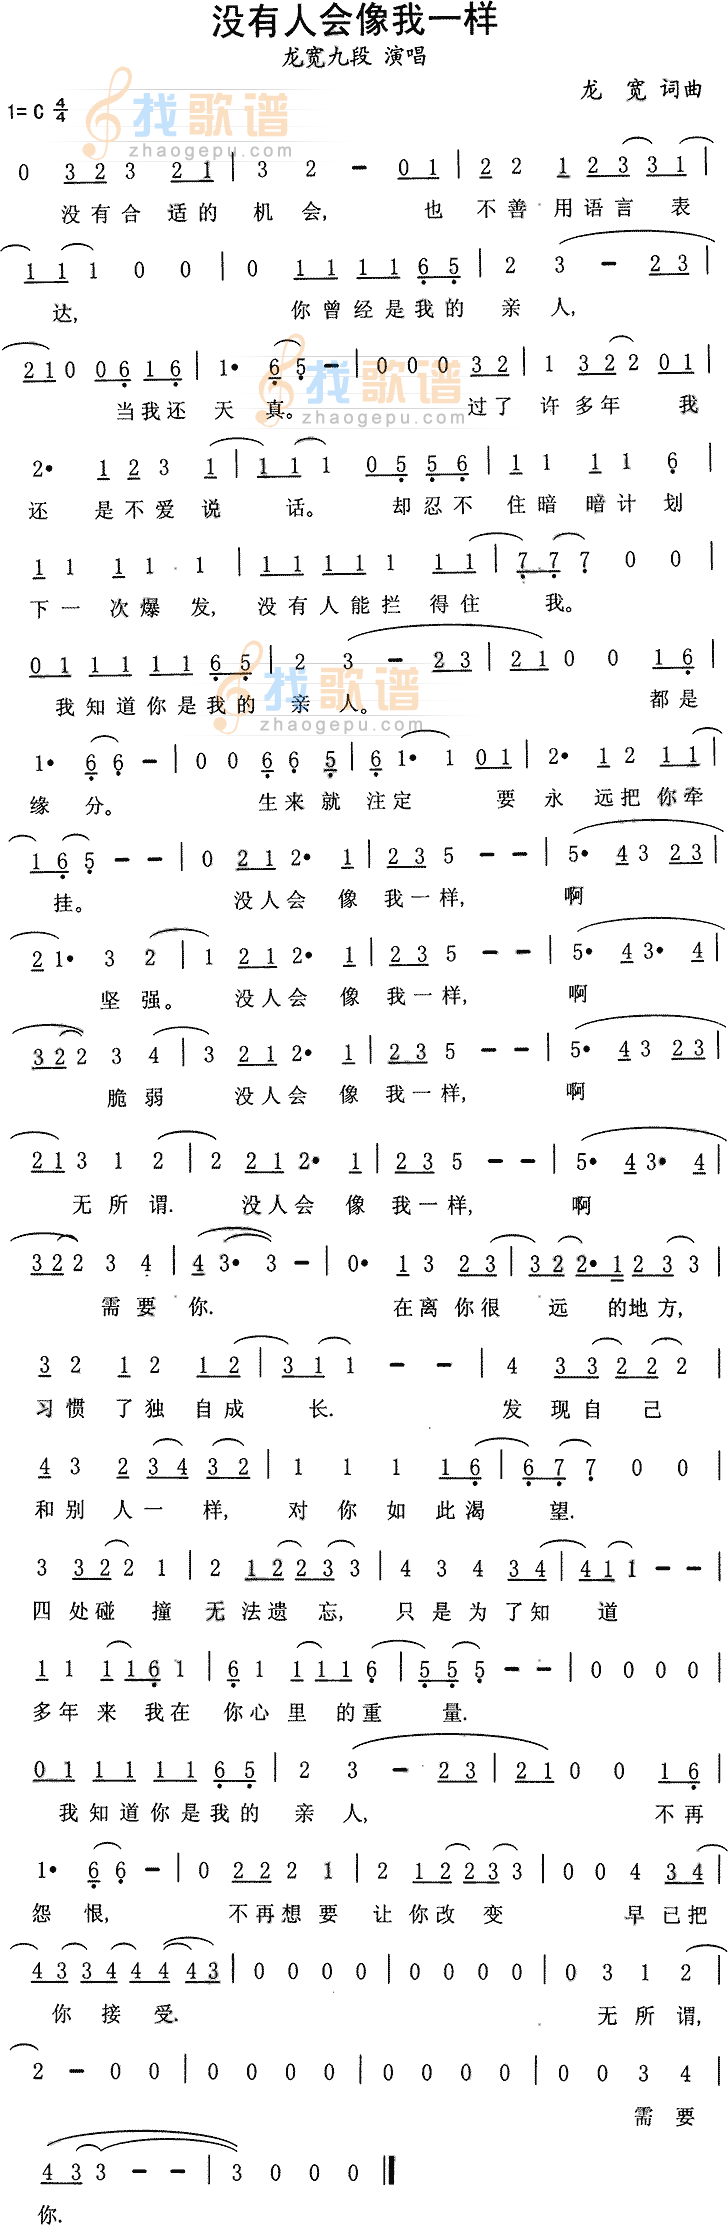 没有人会像我一样
龙宽九段 演唱
龙 宽 词曲
1= C 4/4
找歌谱
zhaogepu.com
0 3 2 3 2 1 | 3 2 - 0 1 | 2 2 1 2 3 3 1 |
没有合 适的 机 会, 也 不善 用语言 表
1 1 1 0 0 | 0 1 1 1 1 6 5 | 2 3 - 2 3 |
达, 你曾经是我的 亲 人,
2 1 0 0 6 1 6 | 1• 6 5 - | 0 0 0 3 2 | 1 3 2 2 0 1 |
当我还 天 真。 过了 许多年 我
找歌谱
zhaogepu.com
2• 1 2 3 1 | 1 1 1 0 5 5 6 | 1 1 1 1 6 |
还 是不爱 说 话。 却忍不 住暗 暗计 划
1 1 1 1 1 | 1 1 1 1 1 1 1 1 | 7 7 7 0 0 |
下一 次爆 发, 没有人能拦 得住 我。
0 1 1 1 1 1 6 5 | 2 3 - 2 3 | 2 1 0 0 1 6 |
我知道你是我的 亲 人。 都是
找歌谱
zhaogepu.com
1• 6 6 - | 0 0 6 6 5 | 6 1• 1 0 1 | 2• 1 2 1 1 |
缘 分。 生来就 注定 要 永 远把你牵
1 6 5 - - | 0 2 1 2• 1 | 2 3 5 - - | 5• 4 3 2 3 |
挂。 没人会 像 我一样, 啊
2 1• 3 2 | 1 2 1 2• 1 | 2 3 5 - - | 5• 4 3• 4 |
坚强。 没人会 像 我一样, 啊
3 2 2 3 4 | 3 2 1 2• 1 | 2 3 5 - - | 5• 4 3 2 3 |
脆弱 没人会 像 我一样, 啊
2 1 3 1 2 | 2 2 1 2• 1 | 2 3 5 - - | 5• 4 3• 4 |
无所谓. 没人会 像 我一样, 啊
3 2 2 3 4 | 4 3• 3 - | 0• 1 3 2 3 | 3 2 2• 1 2 3 3 |
需要 你. 在离你很 远 的地方,
3 2 1 2 1 2 | 3 1 1 - - | 4 3 3 2 2 2 |
习惯 了独 自成 长. 发 现自 己
4 3 2 3 4 3 2 | 1 1 1 1 6 | 6 7 7 0 0 |
和别 人一 样, 对 你 如 此渴 望.
3 3 2 2 1 | 2 1 2 2 3 3 | 4 3 4 3 4 | 4 1 1 - - |
四 处碰 撞 无 法遗 忘, 只 是为 了知 道
1 1 1 1 6 1 | 6 1 1 1 1 6 | 5 5 5 - - | 0 0 0 0 |
多年 来 我在 你心 里 的重 量.
0 1 1 1 1 1 6 5 | 2 3 - 2 3 | 2 1 0 0 1 6 |
我知道你是我的 亲 人, 不再
1• 6 6 - | 0 2 2 2 1 | 2 1 2 2 3 3 | 0 0 4 3 4 |
怨 恨, 不再想要 让 你改 变 早 已把
4 3 3 4 4 4 4 3 | 0 0 0 0 | 0 0 0 0 | 0 3 1 2 |
你 接 受. 无所谓,
2 - 0 0 | 0 0 0 0 | 0 0 0 0 | 0 0 3 4 |
需要
4 3 3 - - | 3 0 0 0 ‖
你.